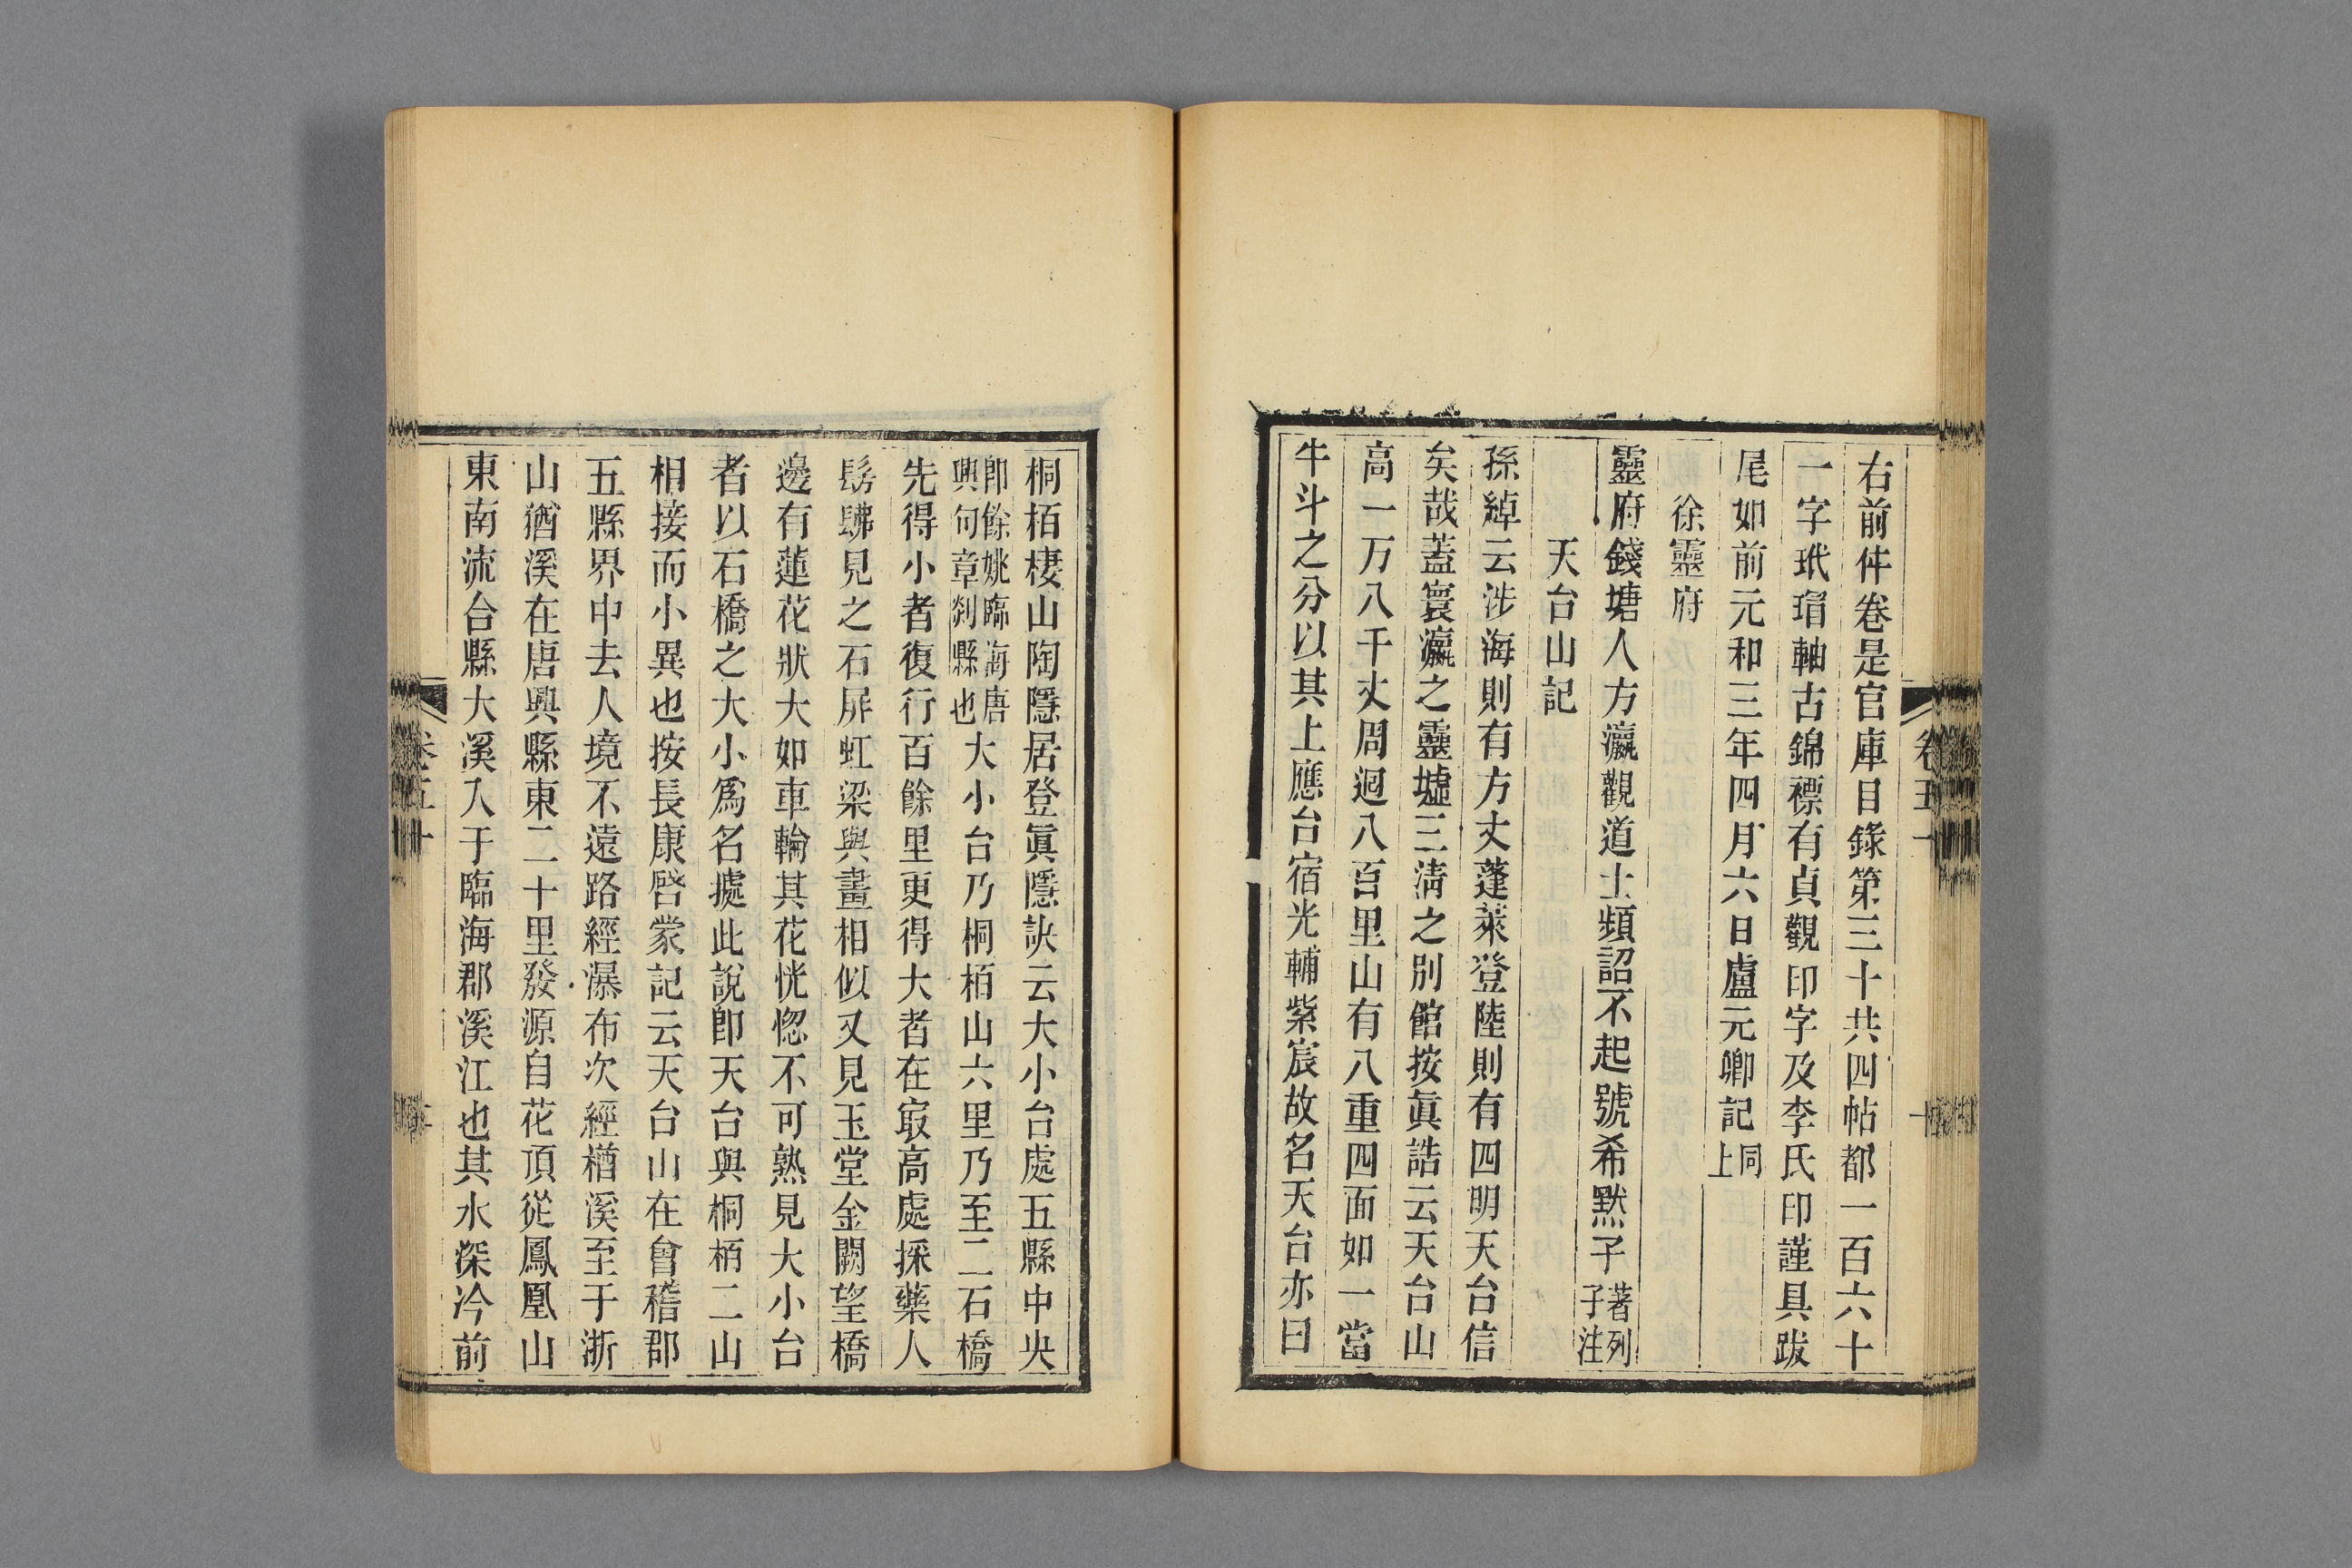 右前件卷是官庫目錄第三十共四帖都一百六十
一字玳瑁軸古錦褾有貞觀印字及李氏印謹具跋
尾如前元和三年四月六日盧元卿記同上
徐靈府
靈府錢塘人方瀛觀道士頻詔不起號希默子著列子注
天台山記
孫綽云涉海則有方丈蓬萊登陸則有四明天台信
矣哉蓋寰瀛之靈墟三淸之別館按眞誥云天台山
高一万八千丈周迴八百里山有八重四面如一當
牛斗之分以其上應台宿光輔紫宸故名天台亦曰
桐栢棲山陶隱居登眞隱訣云大小台處五縣中央
卽餘姚臨海唐興句章剡縣也大小台乃桐栢山六里乃至二石橋
先得小者復行百餘里更得大者在㝡高處採藥人
髣髴見之石屛虹梁與畫相似又見玉堂金闕望橋
邊有蓮花狀大如車輪其花恍惚不可熟見大小台
者以石橋之大小爲名據此說卽天台與桐栢二山
相接而小異也按長康啓蒙記云天台山在會稽郡
五縣界中去人境不遠路經瀑布次經楢溪至于浙
山猶溪在唐興縣東二十里發源自花頂從鳳凰山
東南流合縣大溪入于臨海郡溪江也其水深冷前
卷五十